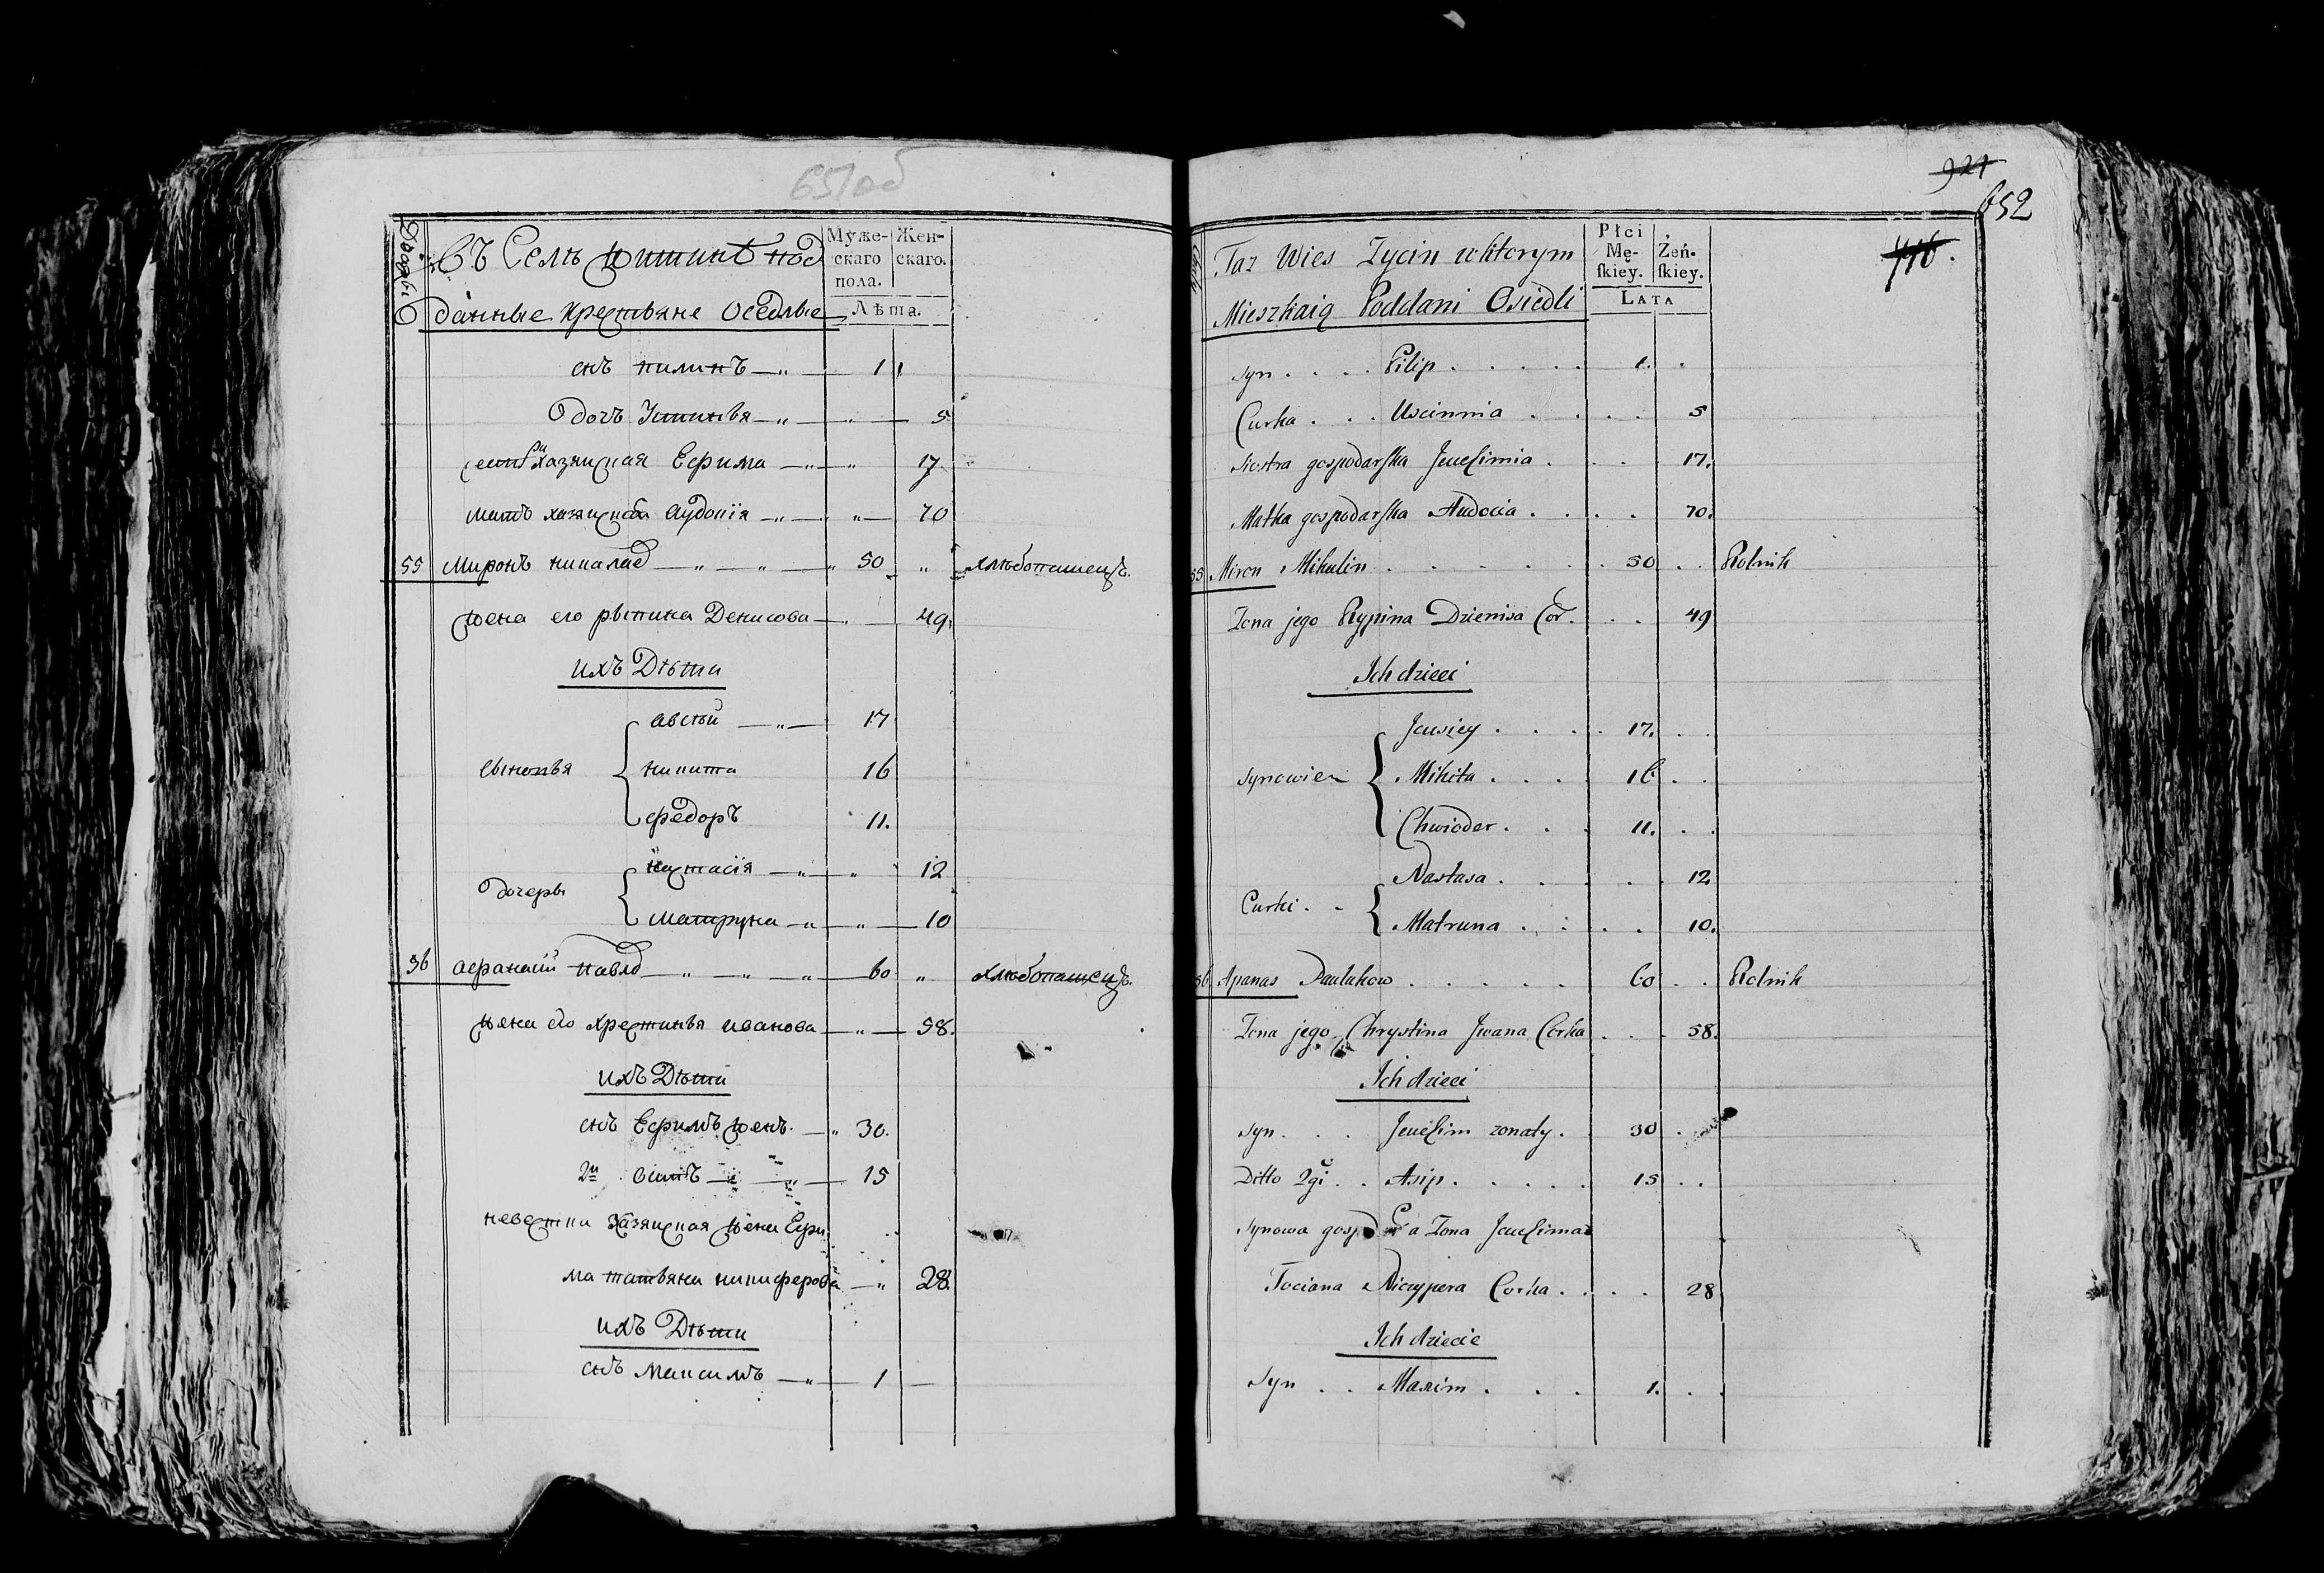 651 об
Дворы
Въ Селѣ Житинѣ под
данные крестьяне оседлые
Муже-
скаго
пола.
Жен-
скаго.
Лѣта.
снъ пилипъ — „ — 1
дочъ Устинья — „ — „ — 5
сестра хазяиская Ефима — „ — „ 17
мать хазяиская Аудокія — „ — „ — 70
55 Миронъ никалаѣ — „ — „ — „ 50 „ хлѣбопашецъ.
жена его рыпина Денисова — „ — 49
ихъ Дѣти
сыновья
авсѣй — „ — 17
никита 16
федоръ 11.
дочеры
настасія — „ — „ 12
матруна — „ — „ — 10
56 афанасій павло — „ — „ — „ — 60 „ хлѣбопашецъ.
жена его хрестинья иванова — „ — 58.
ихъ Дѣти
снъ Ефимъ жен. — „ 30.
2й осипъ — „ — „ — 15
невестка хазяиская жена Ефи
ма татьяна никиферова — „ 28.
ихъ Дѣти
снъ максимъ — „ — 1 —
921
652
716.
Taz Wies Zycin w ktorym
Mieszkaią Poddani Osiedli
Płci
Mę-
skiey.
Zeń-
skiey.
LATA
syn . . . . Pilip . . . . . 1. .
Curka . . . Uscinnia . . . . 5
siostra gospodarska Jeuchimia . . . . 17.
Matka gospodarska Audocia . . . . 70.
55 Miron Mikulin . . . . . . 50 . . Rolnik
Zona jego Rypina Dzienisa Cor. . . 49
Ich dzieci
synowie
Jausiey . . . . 17. . .
Mikita . . . . 16 . .
Chwioder . . . 11. . .
Curki . .
Nastasa . . . . 12
Matruna . . . . 10.
56 Apanas Paulukow . . . . . 60 . . Rolnik
Zona jego Chrystina Jwana Corka . . . 58.
Ich dzieci
syn . . . Jeuchim zonaty . 30 . .
Ditto 2gi . . Asip . . . . . 15 . .
Synowa gosp a Zona Jeuchima
Tociana Niczypera Corka . . . . 28
Ich dziecie
Syn . . Maxim . . . 1. . .